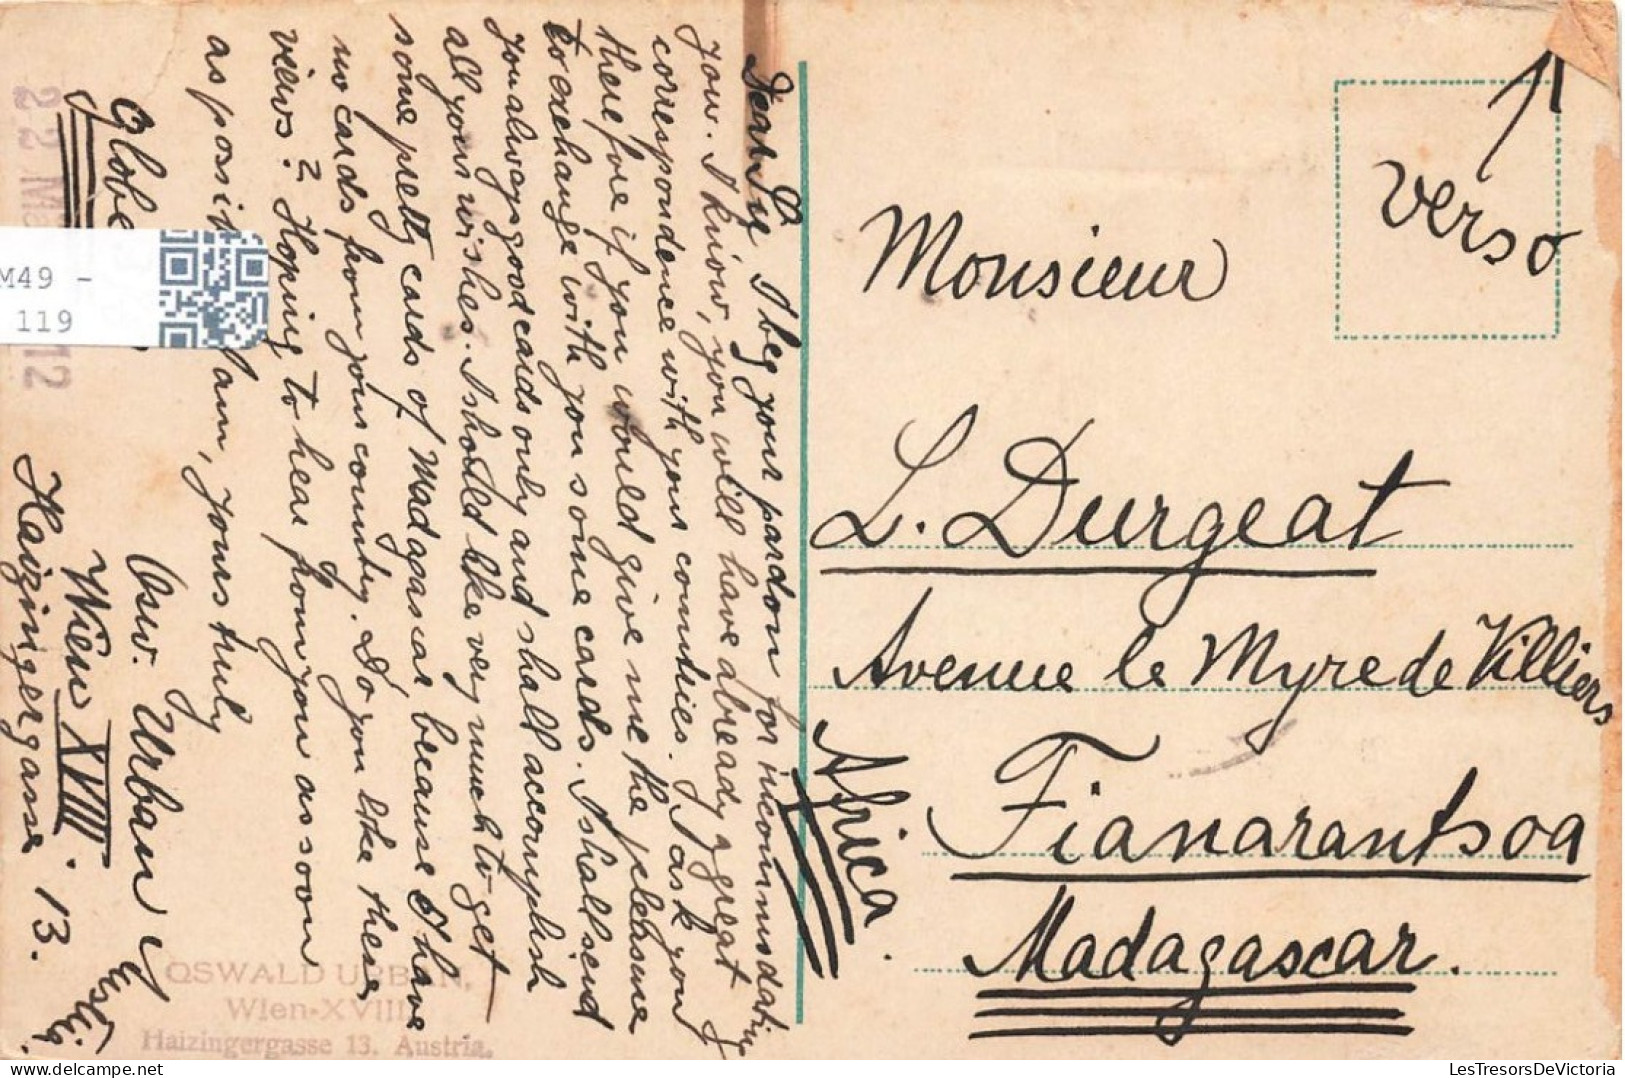 Dear Sir I beg your pardon for incommodating
you. I know, you will have already a great
correspondence with your countries. I ask your
therefore if you would give me the pleasure
to exchange with you some cards. I shall send
you always good cards only and shall accomplish
all your wishes. I should like very much to get
some pretty cards of Madagascar because I have
no cards from your country. Do you like these
views? Hoping to hear from you as soon
as possib am, yours truly
Globe
Osw. Urban
Wien XVIII.
Haizingergasse 13.
Austria.
22 M 12
OSWALD URBAN,
Wien-XVIII
Haizingergasse 13. Austria.
M49 -
119
verso
Monsieur
L. Durgeat
Avenue le Myre de Villiers
Fianarantsoa
Madagascar.
Africa.
LesTresorsDeVictoria